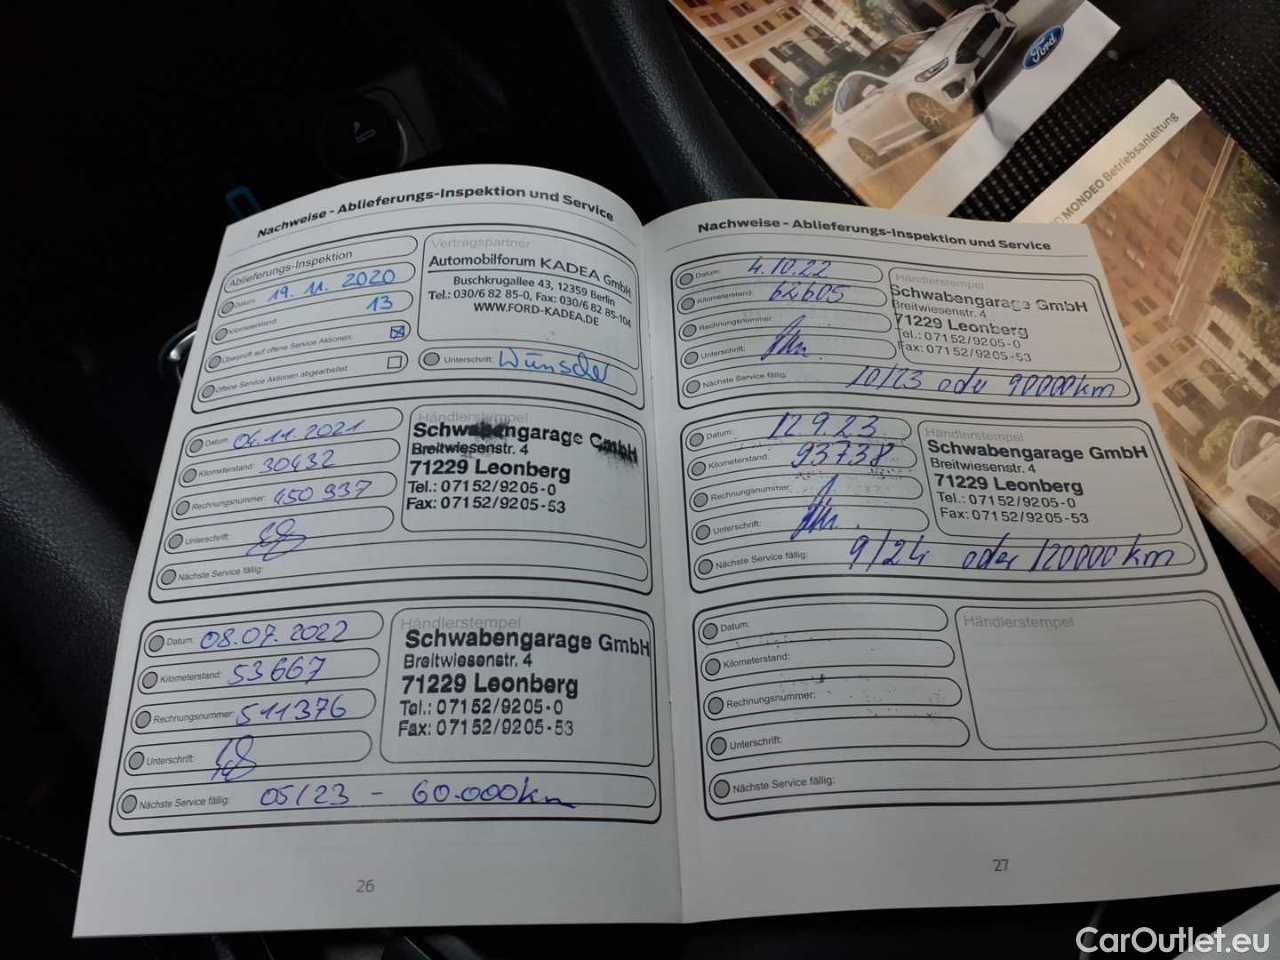 Nachweise - Ablieferungs-Inspektion und Service
Ablieferungs-Inspektion
Datum: 19. 11. 2020
Kilometerstand: 13
Überprüft auf offene Service Aktionen:
Offene Service Aktionen abgearbeitet
Vertragspartner
Automobilforum KADEA GmbH
Buschkrugallee 43, 12359 Berlin
Tel.: 030/6 82 85-0, Fax: 030/6 82 85-104
WWW.FORD-KADEA.DE
Unterschrift: Wünscher
Datum: 04.11.2021
Kilometerstand: 30432
Rechnungsnummer: 450 937
Unterschrift:
Nächste Service fällig:
Händlerstempel
Schwabengarage GmbH
Breitwiesenstr. 4
71229 Leonberg
Tel.: 07152/9205-0
Fax: 07152/9205-53
Datum: 08.07.2022
Kilometerstand: 53667
Rechnungsnummer: 511376
Unterschrift:
Nächste Service fällig: 05/23 - 60.000km
Händlerstempel
Schwabengarage GmbH
Breitwiesenstr. 4
71229 Leonberg
Tel.: 07152/9205-0
Fax: 07152/9205-53
26
Nachweise - Ablieferungs-Inspektion und Service
Datum: 4.10.22
Kilometerstand: 62605
Rechnungsnummer:
Unterschrift:
Nächste Service fällig: 10/23 oder 90000km
Händlerstempel
Schwabengarage GmbH
Breitwiesenstr. 4
71229 Leonberg
Tel.: 07152/9205-0
Fax: 07152/9205-53
Datum: 12.9.23
Kilometerstand: 93738
Rechnungsnummer:
Unterschrift:
Nächste Service fällig: 9/24 oder 120000km
Händlerstempel
Schwabengarage GmbH
Breitwiesenstr. 4
71229 Leonberg
Tel.: 07152/9205-0
Fax: 07152/9205-53
Datum:
Kilometerstand:
Rechnungsnummer:
Unterschrift:
Nächste Service fällig:
Händlerstempel
27
Ford
MONDEO Betriebsanleitung
CarOutlet.eu